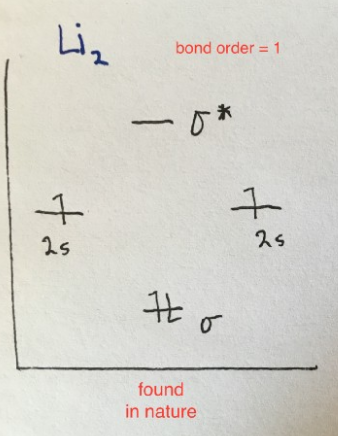 Li₂
bond order = 1
σ*
2s
2s
σ
found
in nature